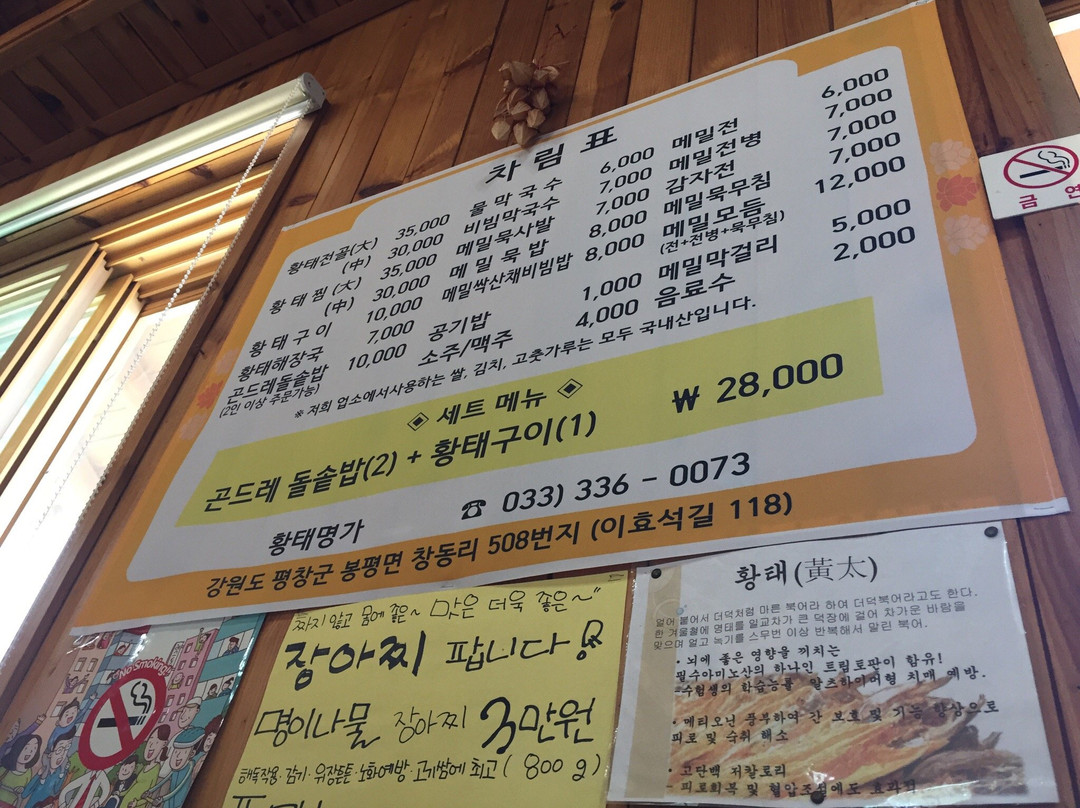 차 림 표
황태전골(大) 35,000
(中) 30,000
황 태 찜 (大) 35,000
(中) 30,000
황 태 구 이 10,000
황태해장국 7,000
곤드레돌솥밥 10,000
(2인 이상 주문가능)
물 막 국 수 6,000
비빔막국수 7,000
메밀묵사발 7,000
메 밀 묵 밥 8,000
메밀싹산채비빔밥 8,000
공기밥 1,000
소주/맥주 4,000
메밀전 6,000
메밀전병 7,000
감자전 7,000
메밀묵무침 7,000
메밀모듬 12,000
(전+전병+묵무침)
메밀막걸리 5,000
음료수 2,000
※ 저희 업소에서사용하는 쌀, 김치, 고춧가루는 모두 국내산입니다.
◈ 세트 메뉴 ◈
곤드레 돌솥밥(2) + 황태구이(1) ₩ 28,000
황태명가 ☎ 033) 336 - 0073
강원도 평창군 봉평면 창동리 508번지 (이효석길 118)
금 연
No Smoking!
짜지 않고 몸에 좋은~ 맛은 더욱 좋은~"
장아찌 팝니다!
명이나물 장아찌 3만원
해독작용·감기·위장튼튼·노화예방·고기쌈에 최고 (800g)
황태(黃太)
얼어 붙어서 더덕처럼 마른 북어라 하여 더덕북어라고도 한다.
한 겨울철에 명태를 일교차가 큰 덕장에 걸어 차가운 바람을
맞으며 얼고 녹기를 스무번 이상 반복해서 말린 북어.
· 뇌에 좋은 영향을 끼치는
필수아미노산의 하나인 트립토판이 함유!
=수험생의 학습능률 알츠하이머형 치매 예방.
· 메티오닌 풍부하여 간 보호 및 기능 향상으로
피로 및 숙취 해소
· 고단백 저칼로리
- 피로회복 및 혈압조절에도 효과적